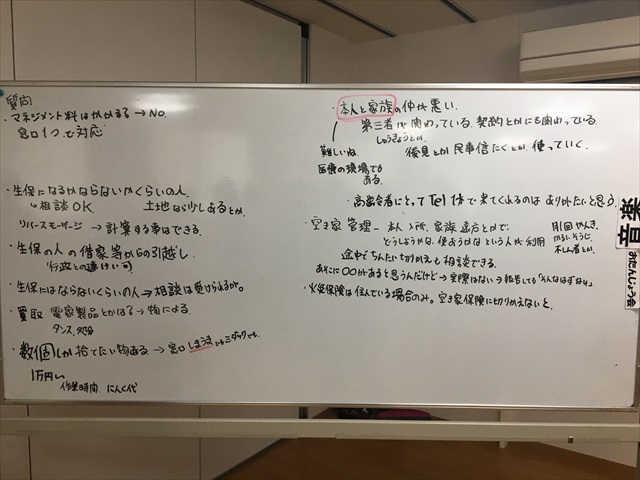 質問
・マネジメント料はかかる? → No.
窓口1つで対応
・生保になるかならないかくらいの人.
↳相談OK. 土地なら少しあるとか.
リバースモーゲージ → 計算する事はできる.
・生保の人の借家等からの引越し
行政との連けい可
・生保にはならないくらいの人→相談は受けられるか。
・買取 電家製品とかは?→物による.
タンス、欠分
・数個しか捨てたい物ある. → 窓口しぼうま でもミダックでも.
1万円〜
作業時間 にんく代
・本人と家族の仲が悪い.
第三者が関わっている. 契約とかにも関わっている.
しゅうきょうとか.
難しいね.
後見とか民事信たくとか、使っていく.
医療の現場でも
ある.
・高齢者にとって Tel1本で来てくれるのは ありがたいと思う.
・空き家管理 - 本人入所、家族遠方とかで.
どうしようかな、使おうかな という人が利用
月1回 かんき.
かるいそうじ.
不しん者とか.
途中でちんたい切りかえも相談できる.
あそこに〇〇があると思うんだけど→実際はない→報告しても「そんなはずない」
・火災保険は住んでいる場合のみ。空き家保険に切りかえないと.
楽
章
おたんじょう会